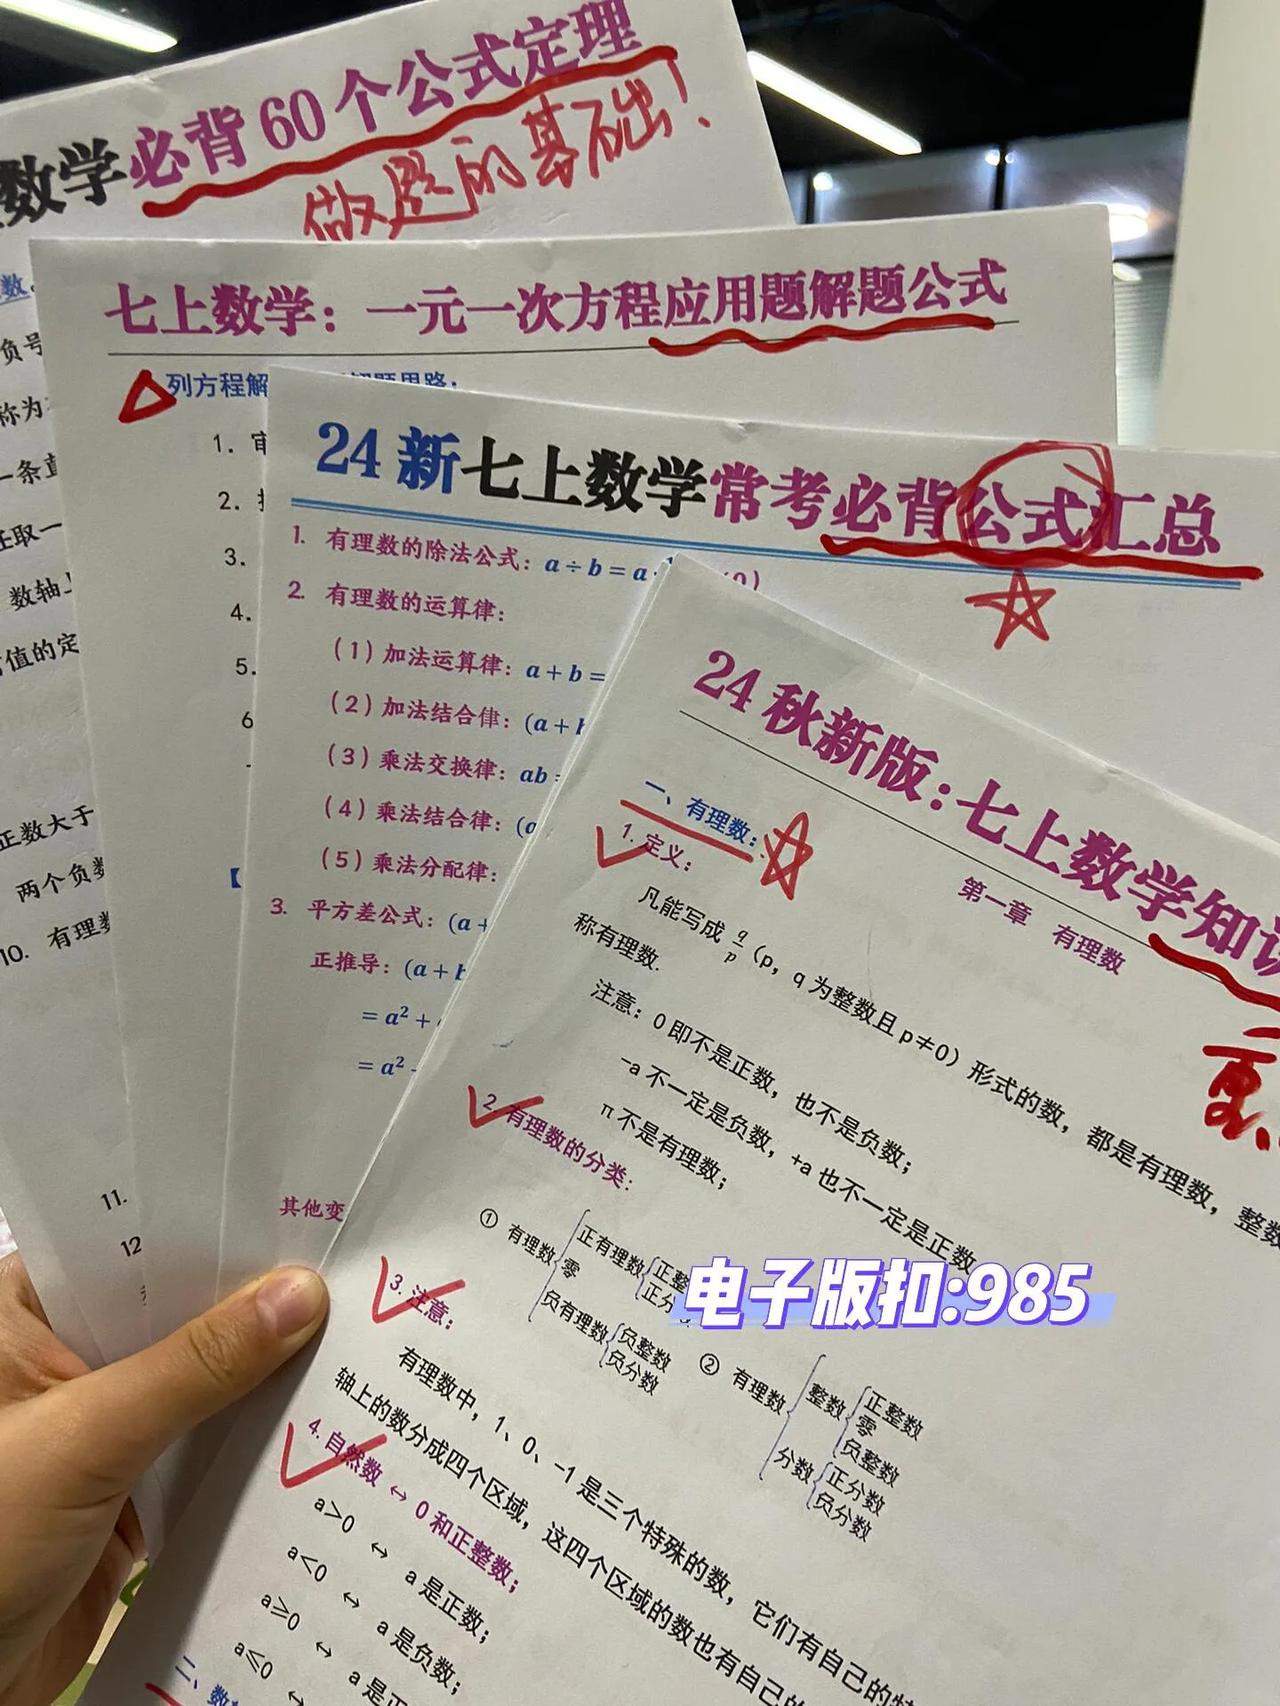 数学必背60个公式定理
做题的基础！
数
负号
称为
一条直
任取一
数轴上
值的定
正数大于
两个负数
10. 有理数
11.
12
七上数学：一元一次方程应用题解题公式
列方程解
1. 审
2.
3.
4.
5.
6
【
24新七上数学常考必背公式汇总
1. 有理数的除法公式：a÷b=a·
2. 有理数的运算律：
（1）加法运算律：a+b=
（2）加法结合律：(a+b
（3）乘法交换律：ab=
（4）乘法结合律：(a
（5）乘法分配律：
3. 平方差公式：(a+
正推导：(a+b
=a²+
=a²-
其他变
24秋新版：七上数学知识
第一章 有理数
一、有理数：
1. 定义：
凡能写成 q/p（p，q为整数且p≠0）形式的数，都是有理数，整数
称有理数.
注意：0即不是正数，也不是负数；
-a不一定是负数，+a也不一定是正数
π不是有理数；
2. 有理数的分类：
① 有理数
正有理数
正整
正分
零
负有理数
负整数
负分数
② 有理数
整数
正整数
零
负整数
分数
正分数
负分数
电子版扣:985
3. 注意：
有理数中，1、0、-1是三个特殊的数，它们有自己的特
轴上的数分成四个区域，这四个区域的数也有自己的
4. 自然数 ↔ 0和正整数；
a>0 ↔ a是正数；
a<0 ↔ a是负数；
a≥0 ↔ a是正
a≤0 ↔
二、数